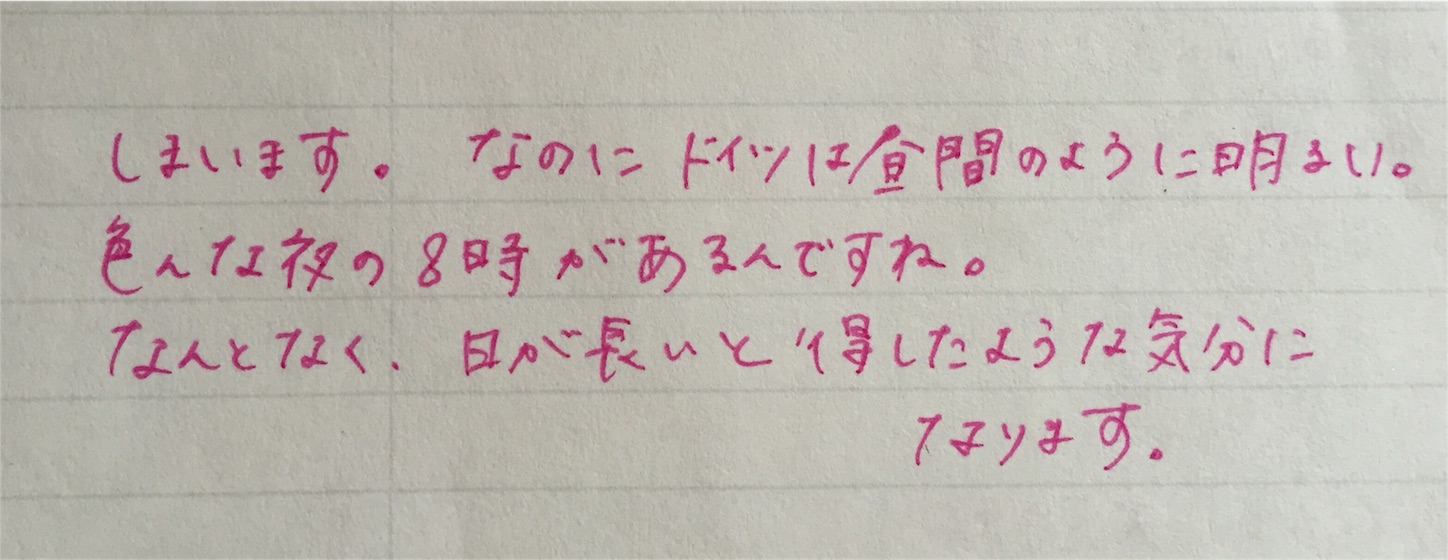 しまいます。 なのに ドイツは昼間のように明るい。
色んな夜の8時があるんですね。
なんとなく、日が長いと得したような気分に
なります。